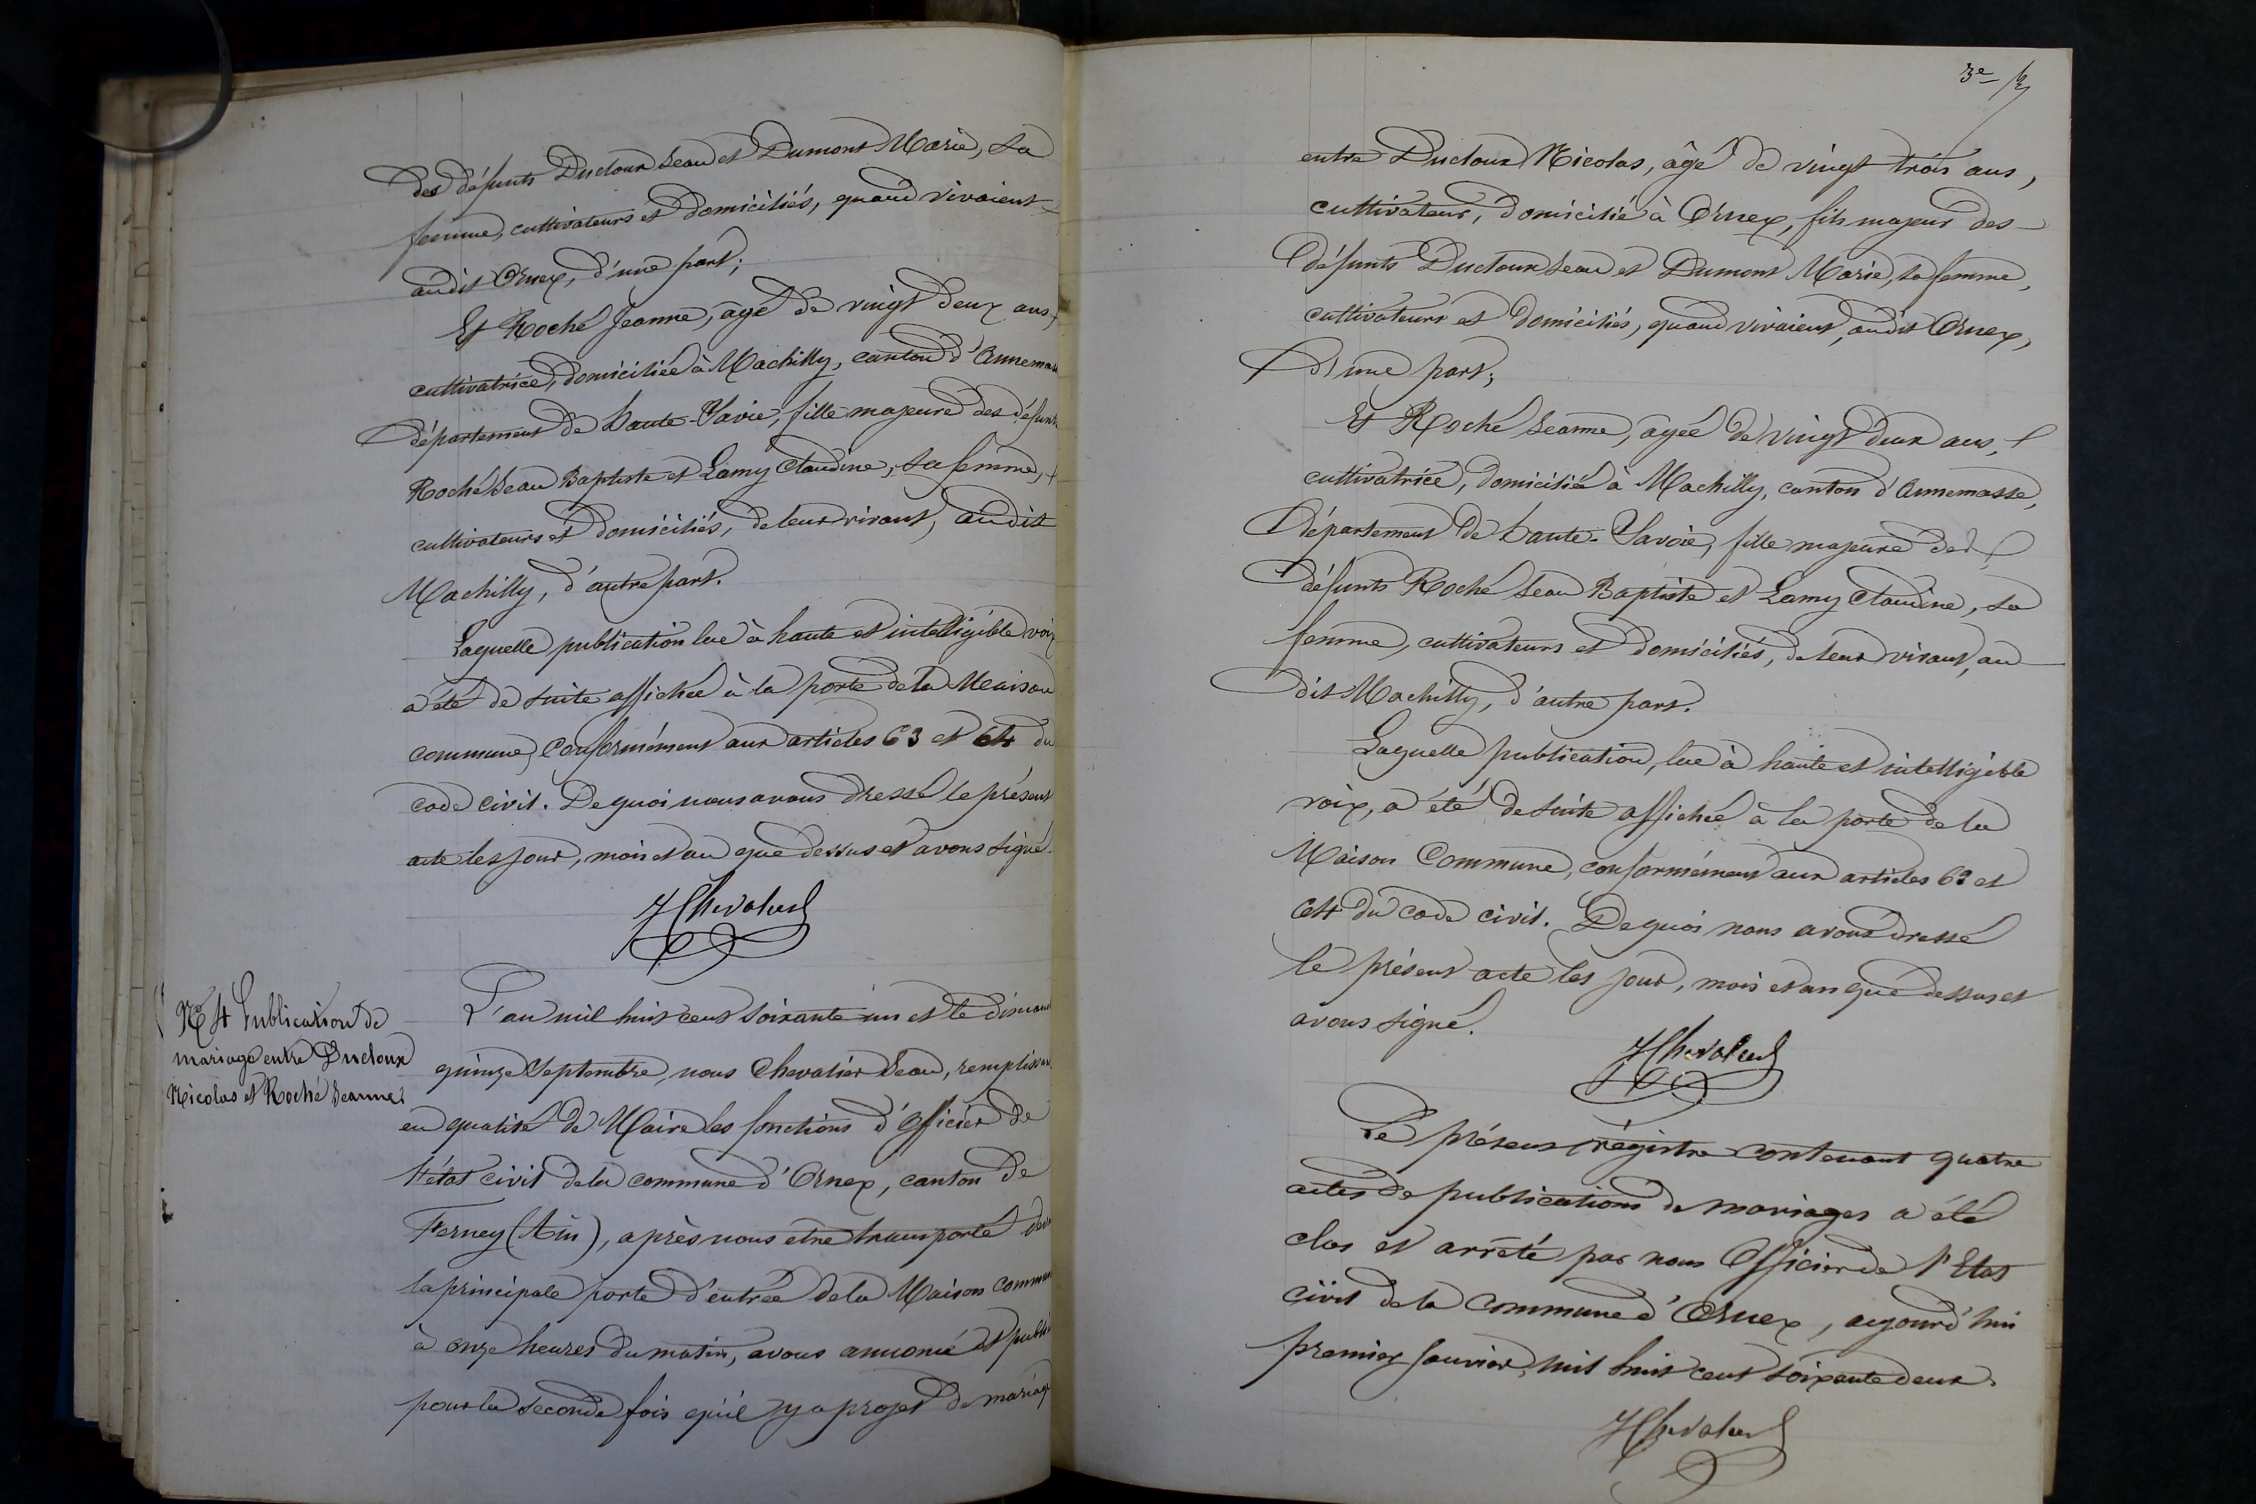 des défunts Ducloux Jean et Dumont Marie, sa
femme, cultivateurs et domiciliés, quand vivaient
audit Ornex, d'une part;
Et Roché Jeanne, agé de vingt deux ans,
cultivatrice, domiciliée à Machilly, canton d'Annemas
département de haute-Savie, fille majeure des défunts
Roché Jean Baptiste et Lamy Claudine, sa femme,
cultivateurs et domiciliés, de leur vivant, audit
Machilly, d'autre part.
Laquelle publication lue à haute et intelligible voix
a été de suite affichée à la porte de la Maison
commune, conformément aux articles 63 et 64 du
code civil. De quoi nous avons dressé le présent
acte les jour, mois et an que dessus et avons signé.
JChevalier
No 4 Publication de
mariage entre Ducloux
Nicolas et Roché Jeanne.
L'an mil huit cent soixante un et le dimanc
quinze Septembre, nous Chevalier Jean, remplissan
en qualité de Maire les fonctions d'officier de
l'état civil de la commune d'Ornex, canton de
Ferney (Ain), après nous etre transporté devan
la principale porte d'entrée de la Maison commun
à onze heures du matin, avons annoncé et publié
pour la seconde fois qu'il y a projet de mariage
3e
entre Ducloux Nicolas, âgé de vingt trois ans,
cultivateur, domicilié à Ornex, fils majeur des
défunts Ducloux Jean et Dumont Marie, sa femme,
cultivateurs et domiciliés, quand vivaient, audit Ornex,
d'une part;
Et Roché Jeanne, agée de vingt deux ans,
cultivatrice, domiciliée à Machilly, canton d'Annemasse,
département de haute-Savoie, fille majeure des
défunts Roché Jean Baptiste et Lamy Claudine, sa
femme, cultivateurs et domiciliés, de leur vivant, au
dit Machilly, d'autre part.
Laquelle publication, lue à haute et intelligible
voix, a été de suite affichée à la porte de la
Maison Commune, conformément aux articles 63 et
64 du code civil. De quoi nous avons dressé
le présent acte les jour, mois et an que dessus et
avons signé.
JChevalier
Le présent régistre contenant quatre
actes de publications de mariages a été
clos et arrêté par nous Officier de l'Etat
civil de la commune d'Ornex, aujourd'hui
premier Janvier, mil huit cent soixante deux.
JChevalier